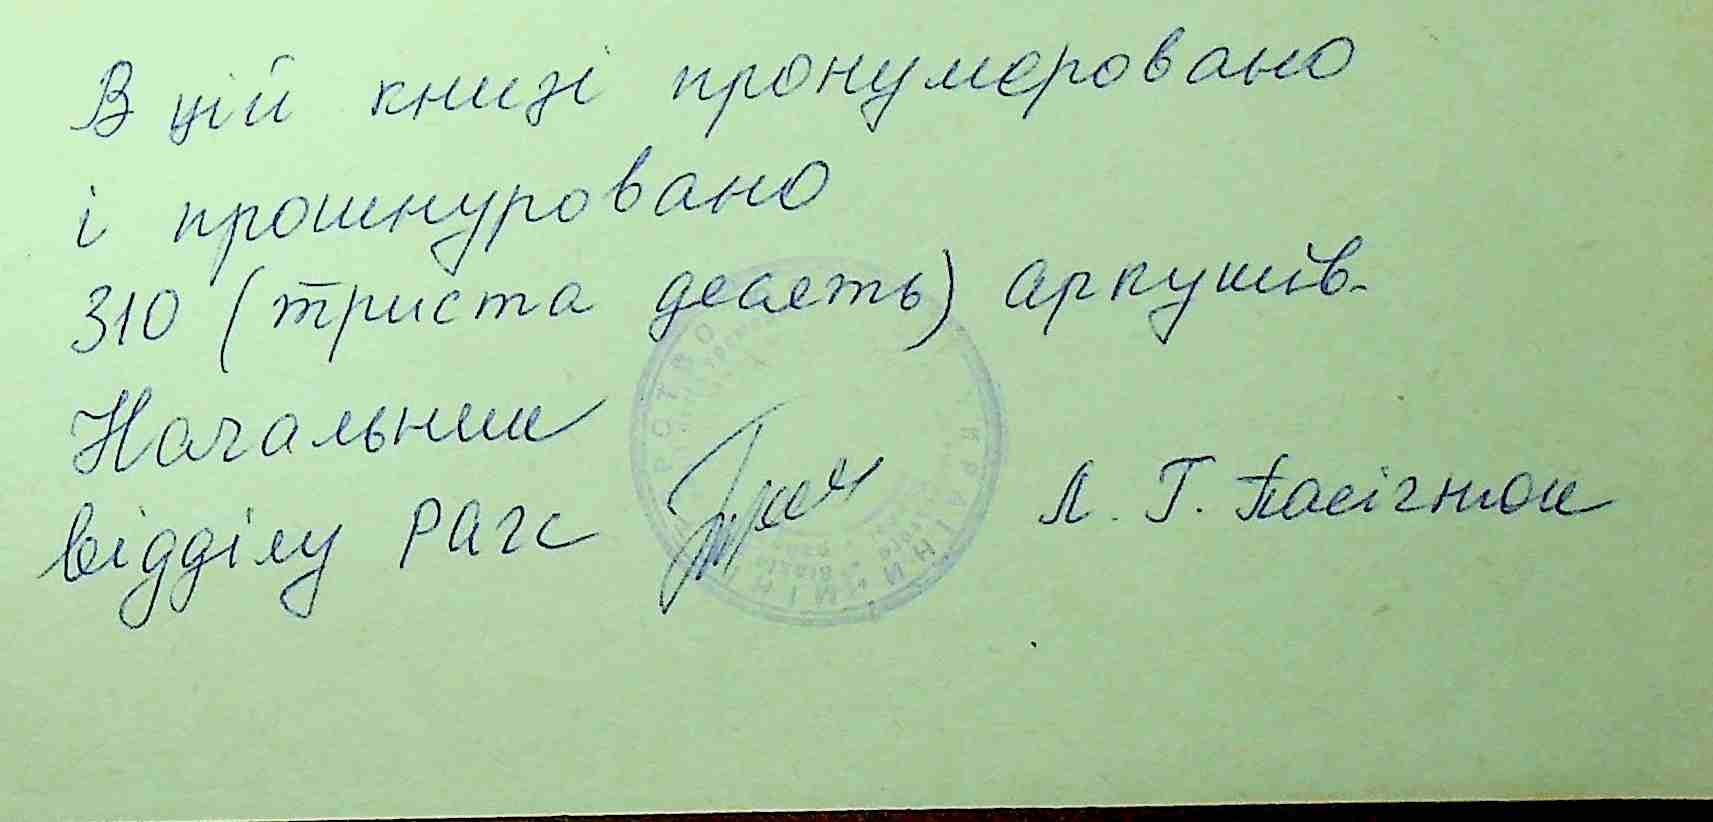 В цій книзі пронумеровано
і прошнуровано
310 (триста десять) аркушів.
Начальник
відділу РАГС Л. Г. Пасічнюк